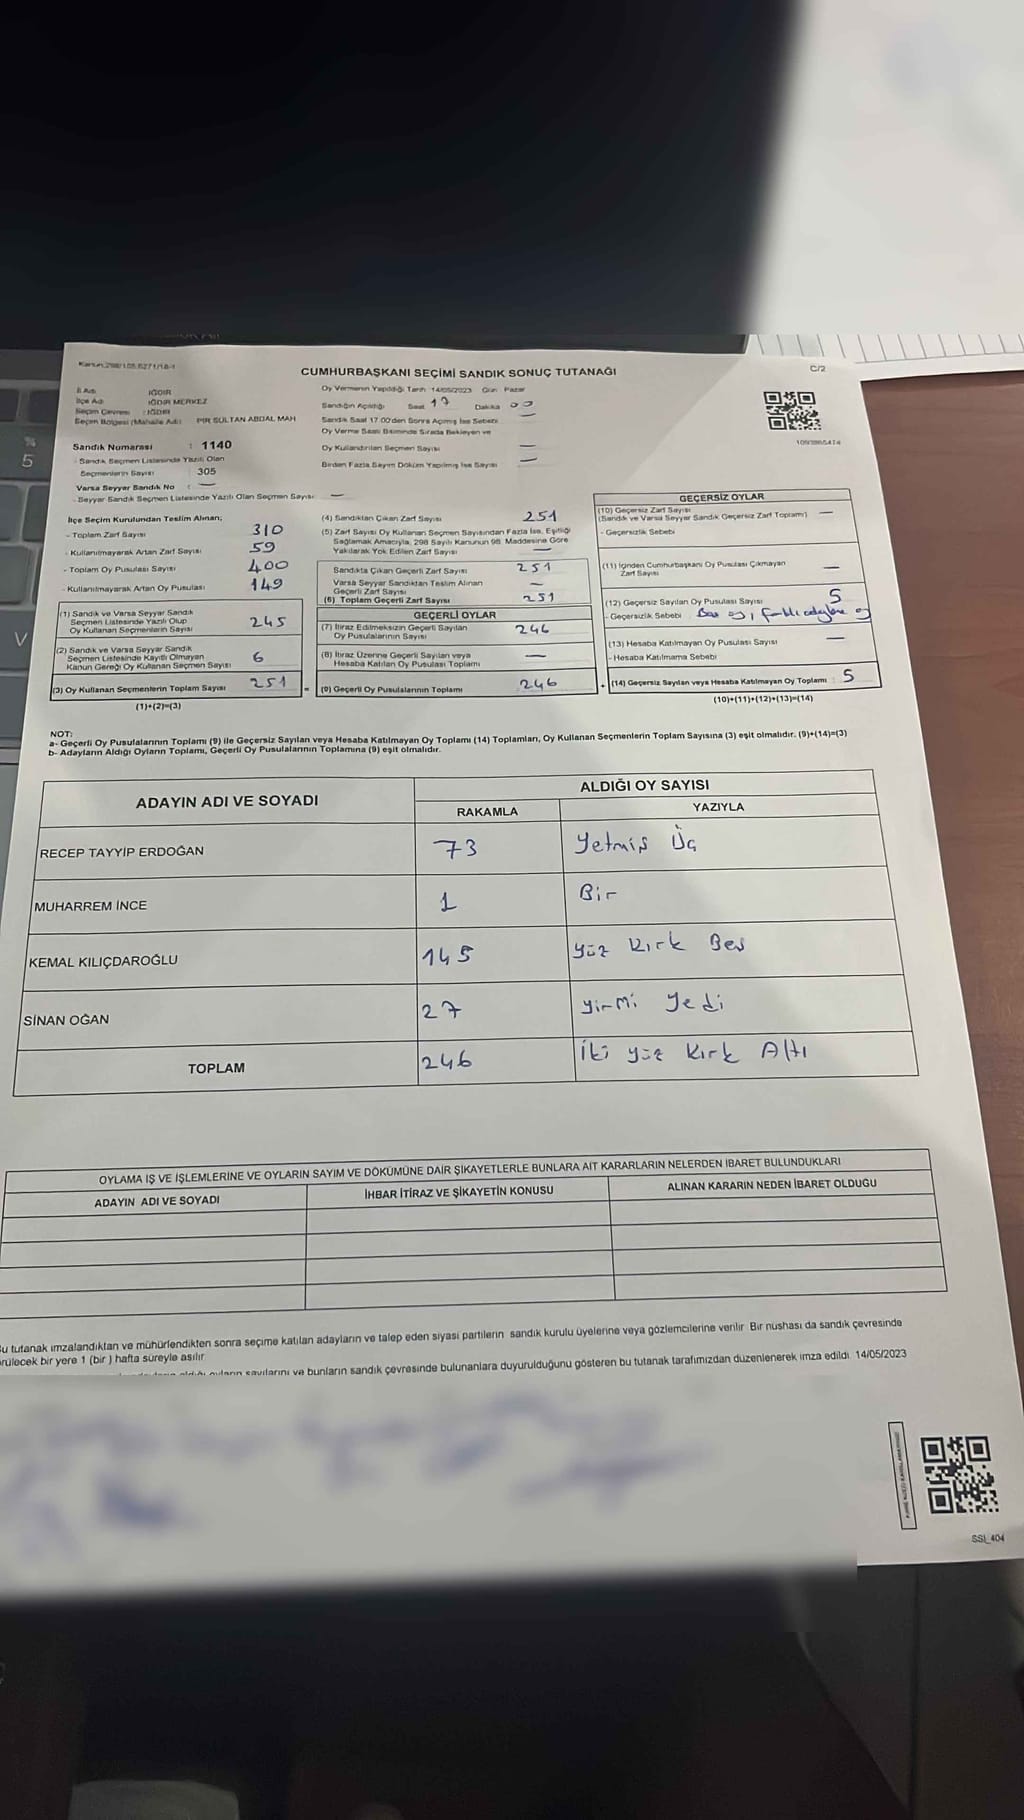 Kanun:298/105.6271/18-1
CUMHURBAŞKANI SEÇİMİ SANDIK SONUÇ TUTANAĞI
C/2
İl Adı IĞDIR
İlçe Adı IĞDIR MERKEZ
Seçim Çevresi : IĞDIR
Seçim Bölgesi (Mahalle Adı) PIR SULTAN ABDAL MAH
Sandık Numarası : 1140
- Sandık Seçmen Listesinde Yazılı Olan
Seçmenlerin Sayısı 305
Varsa Seyyar Sandık No : —
- Seyyar Sandık Seçmen Listesinde Yazılı Olan Seçmen Sayısı —
Oy Vermenin Yapıldığı Tarih 14/05/2023 Gün Pazar
Sandığın Açıldığı Saat 17 Dakika 00
Sandık Saat 17.00'den Sonra Açılmış İse Sebebi —
Oy Verme Saati Bitiminde Sırada Bekleyen ve
Oy Kullandırılan Seçmen Sayısı —
Birden Fazla Sayım Döküm Yapılmış İse Sayısı —
İlçe Seçim Kurulundan Teslim Alınan;
- Toplam Zarf Sayısı 310
- Kullanılmayarak Artan Zarf Sayısı 59
- Toplam Oy Pusulası Sayısı 400
- Kullanılmayarak Artan Oy Pusulası 149
(1) Sandık ve Varsa Seyyar Sandık
Seçmen Listesinde Yazılı Olup
Oy Kullanan Seçmenlerin Sayısı 245
(2) Sandık ve Varsa Seyyar Sandık
Seçmen Listesinde Kayıtlı Olmayan
Kanun Gereği Oy Kullanan Seçmen Sayısı 6
(3) Oy Kullanan Seçmenlerin Toplam Sayısı 251
(1)+(2)=(3)
(4) Sandıktan Çıkan Zarf Sayısı 251
(5) Zarf Sayısı Oy Kullanan Seçmen Sayısından Fazla İse, Eşitliği
Sağlamak Amacıyla, 298 Sayılı Kanunun 98. Maddesine Göre
Yakılarak Yok Edilen Zarf Sayısı —
Sandıkta Çıkan Geçerli Zarf Sayısı 251
Varsa Seyyar Sandıktan Teslim Alınan
Geçerli Zarf Sayısı —
(6) Toplam Geçerli Zarf Sayısı 251
GEÇERLİ OYLAR
(7) İtiraz Edilmeksizin Geçerli Sayılan
Oy Pusulalarının Sayısı 246
(8) İtiraz Üzerine Geçerli Sayılan veya
Hesaba Katılan Oy Pusulası Toplamı —
= (9) Geçerli Oy Pusulalarının Toplamı 246
GEÇERSİZ OYLAR
(10) Geçersiz Zarf Sayısı
(Sandık ve Varsa Seyyar Sandık Geçersiz Zarf Toplamı) —
- Geçersizlik Sebebi
(11) İçinden Cumhurbaşkanı Oy Pusulası Çıkmayan
Zarf Sayısı —
(12) Geçersiz Sayılan Oy Pusulası Sayısı 5
- Geçersizlik Sebebi Boş oy, farklı
(13) Hesaba Katılmayan Oy Pusulası Sayısı —
- Hesaba Katılmama Sebebi
+ (14) Geçersiz Sayılan veya Hesaba Katılmayan Oy Toplamı : 5
(10)+(11)+(12)+(13)=(14)
NOT:
a- Geçerli Oy Pusulalarının Toplamı (9) ile Geçersiz Sayılan veya Hesaba Katılmayan Oy Toplamı (14) Toplamları, Oy Kullanan Seçmenlerin Toplam Sayısına (3) eşit olmalıdır. (9)+(14)=(3)
b- Adayların Aldığı Oyların Toplamı, Geçerli Oy Pusulalarının Toplamına (9) eşit olmalıdır.
ADAYIN ADI VE SOYADI
ALDIĞI OY SAYISI
RAKAMLA YAZIYLA
RECEP TAYYİP ERDOĞAN 73 Yetmiş Üç
MUHARREM İNCE 1 Bir
KEMAL KILIÇDAROĞLU 145 yüz Kırk Beş
SİNAN OĞAN 27 yirmi yedi
TOPLAM 246 İki yüz Kırk Altı
OYLAMA İŞ VE İŞLEMLERİNE VE OYLARIN SAYIM VE DÖKÜMÜNE DAİR ŞİKAYETLERLE BUNLARA AİT KARARLARIN NELERDEN İBARET BULUNDUKLARI
ADAYIN ADI VE SOYADI İHBAR İTİRAZ VE ŞİKAYETİN KONUSU ALINAN KARARIN NEDEN İBARET OLDUĞU
tutanak imzalandıktan ve mühürlendikten sonra seçime katılan adayların ve talep eden siyasi partilerin sandık kurulu üyelerine veya gözlemcilerine verilir Bir nüshası da sandık çevresinde
bir yere 1 (bir ) hafta süreyle asılır
sayılarını ve bunların sandık çevresinde bulunanlara duyurulduğunu gösteren bu tutanak tarafımızdan düzenlenerek imza edildi. 14/05/2023
SSI_404